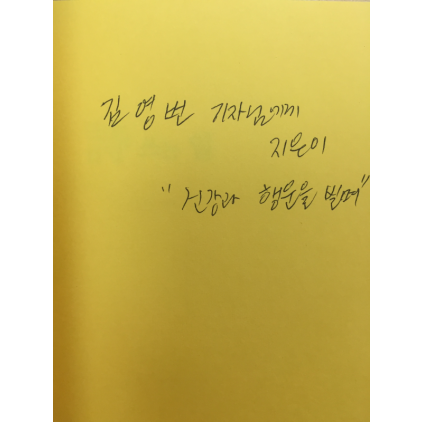 김영번 기자님에게
지은이
"건강과 행운을 빌며"